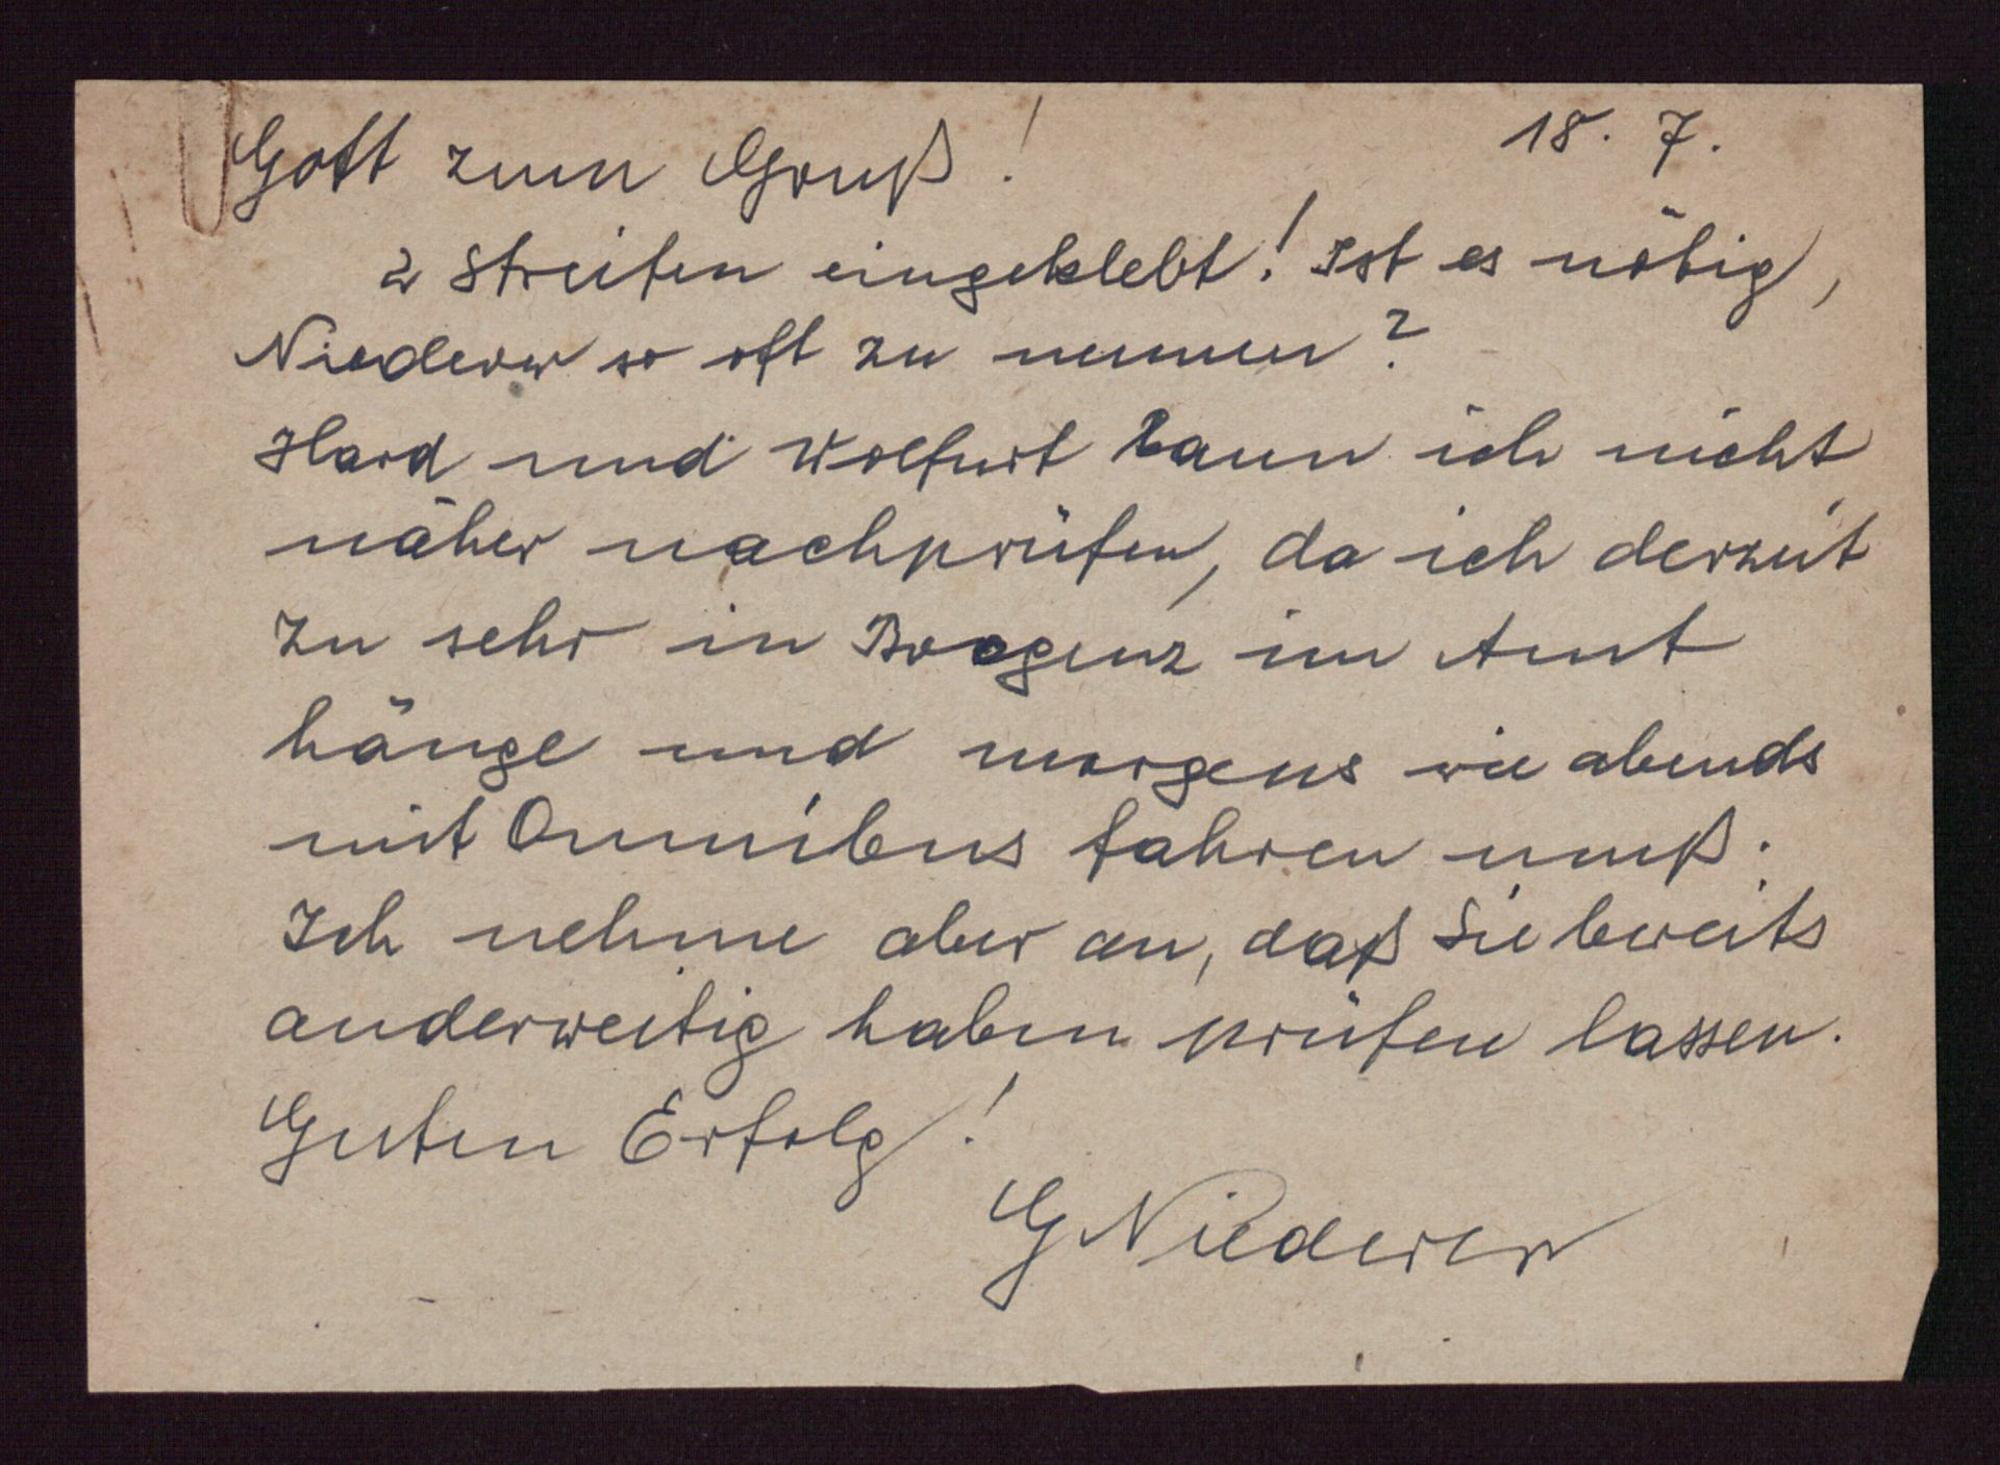 Gott zum Gruß! 18. 7.
2 Streifen eingeklebt! Ist es nötig,
Niederer so oft zu nennen?
Hard und Wolfurt kann ich nicht
näher nachprüfen, da ich derzeit
zu sehr in Bregenz im Amt
hänge und morgens wie abends
mit Omnibus fahren muß.
Ich nehme aber an, daß Sie bereits
anderweitig haben prüfen lassen.
Guten Erfolg!
G Niederer